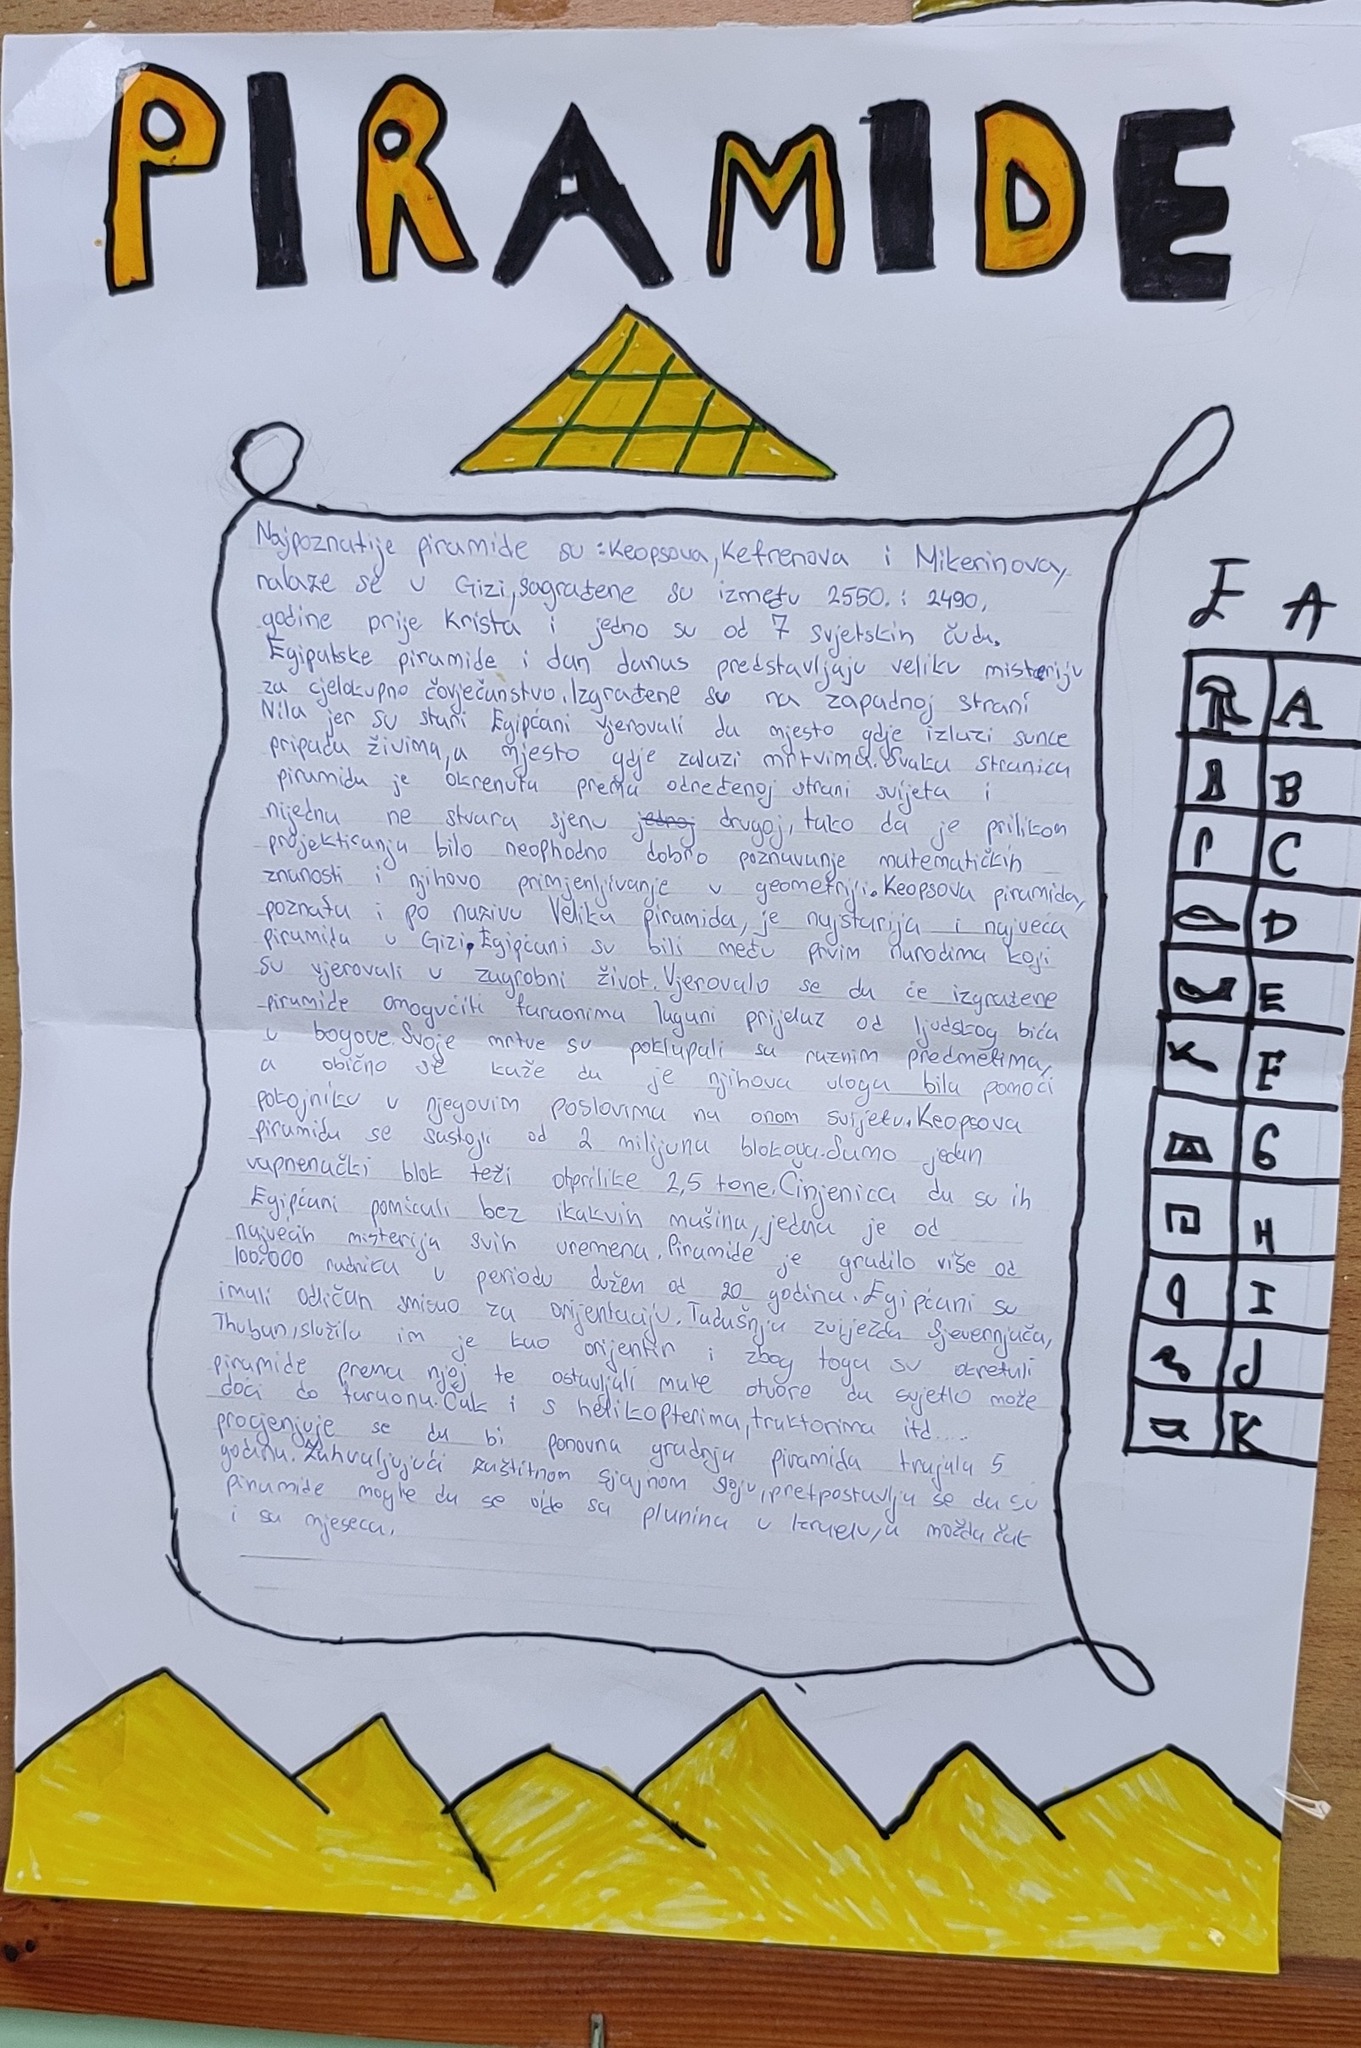 PIRAMIDE
Najpoznatije piramide su : Keopsova, Kefrenova i Mikerinova,
nalaze se u Gizi, sagrađene su između 2550. i 2490.
godine prije Krista i jedno su od 7 svjetskih čuda.
Egipatske piramide i dan danas predstavljaju veliku misteriju
za cjelokupno čovječanstvo. Izgrađene su na zapadnoj strani
Nila jer su stari Egipćani vjerovali da mjesto gdje izlazi sunce
pripada živima, a mjesto gdje zalazi mrtvima. Svaka stranica
piramida je okrenuta prema određenoj strani svijeta i
nijedna ne stvara sjenu jednoj drugoj, tako da je prilikom
projektiranja bilo neophodno dobro poznavanje matematičkih
znanosti i njihovo primjenjivanje u geometriji. Keopsova piramida,
poznata i po nazivu Velika piramida, je najstarija i najveća
piramida u Gizi. Egipćani su bili među prvim narodima koji
su vjerovali u zagrobni život. Vjerovalo se da će izgrađene
piramide omogućiti faraonima lagani prijelaz od ljudskog bića
u bogove. Svoje mrtve su poklapali sa raznim predmetima,
a obično se kaže da je njihova uloga bila pomoći
pokojniku u njegovim poslovima na onom svijetu. Keopsova
piramida se sastoji od 2 milijuna blokova. Samo jedan
vapnenački blok teži otprilike 2,5 tone. Činjenica da su ih
Egipćani pomicali bez ikakvih mašina, jedna je od
najvećih misterija svih vremena. Piramide je gradilo više od
100.000 radnika u periodu dužem od 20 godina. Egipćani su
imali odličan smisao za orijentaciju. Tadašnja zvijezda Sjevernjača,
Thuban, služila im je kao orijentir i zbog toga su okretali
piramide prema njoj te ostavljali male otvore da svjetlo može
doći do faraona. Čak i s helikopterima, traktorima itd....
procjenjuje se da bi ponovna gradnja piramida trajala 5
godina. Zahvaljujući zaštitnom sjajnom sloju, pretpostavlja se da su
piramide mogle da se vide sa planina u Izraelu, a možda čak
i sa mjeseca.
E A
A
B
C
D
E
F
G
H
I
J
K